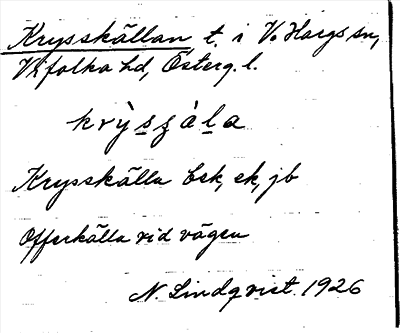 Krysskällan t. i V. Hargs sn,
Vifolka hd, Österg. l.
krỳsʂàla
Krysskälla bsk, ek, jb
Offerkälla vid vägen
N. Lindqvist. 1926